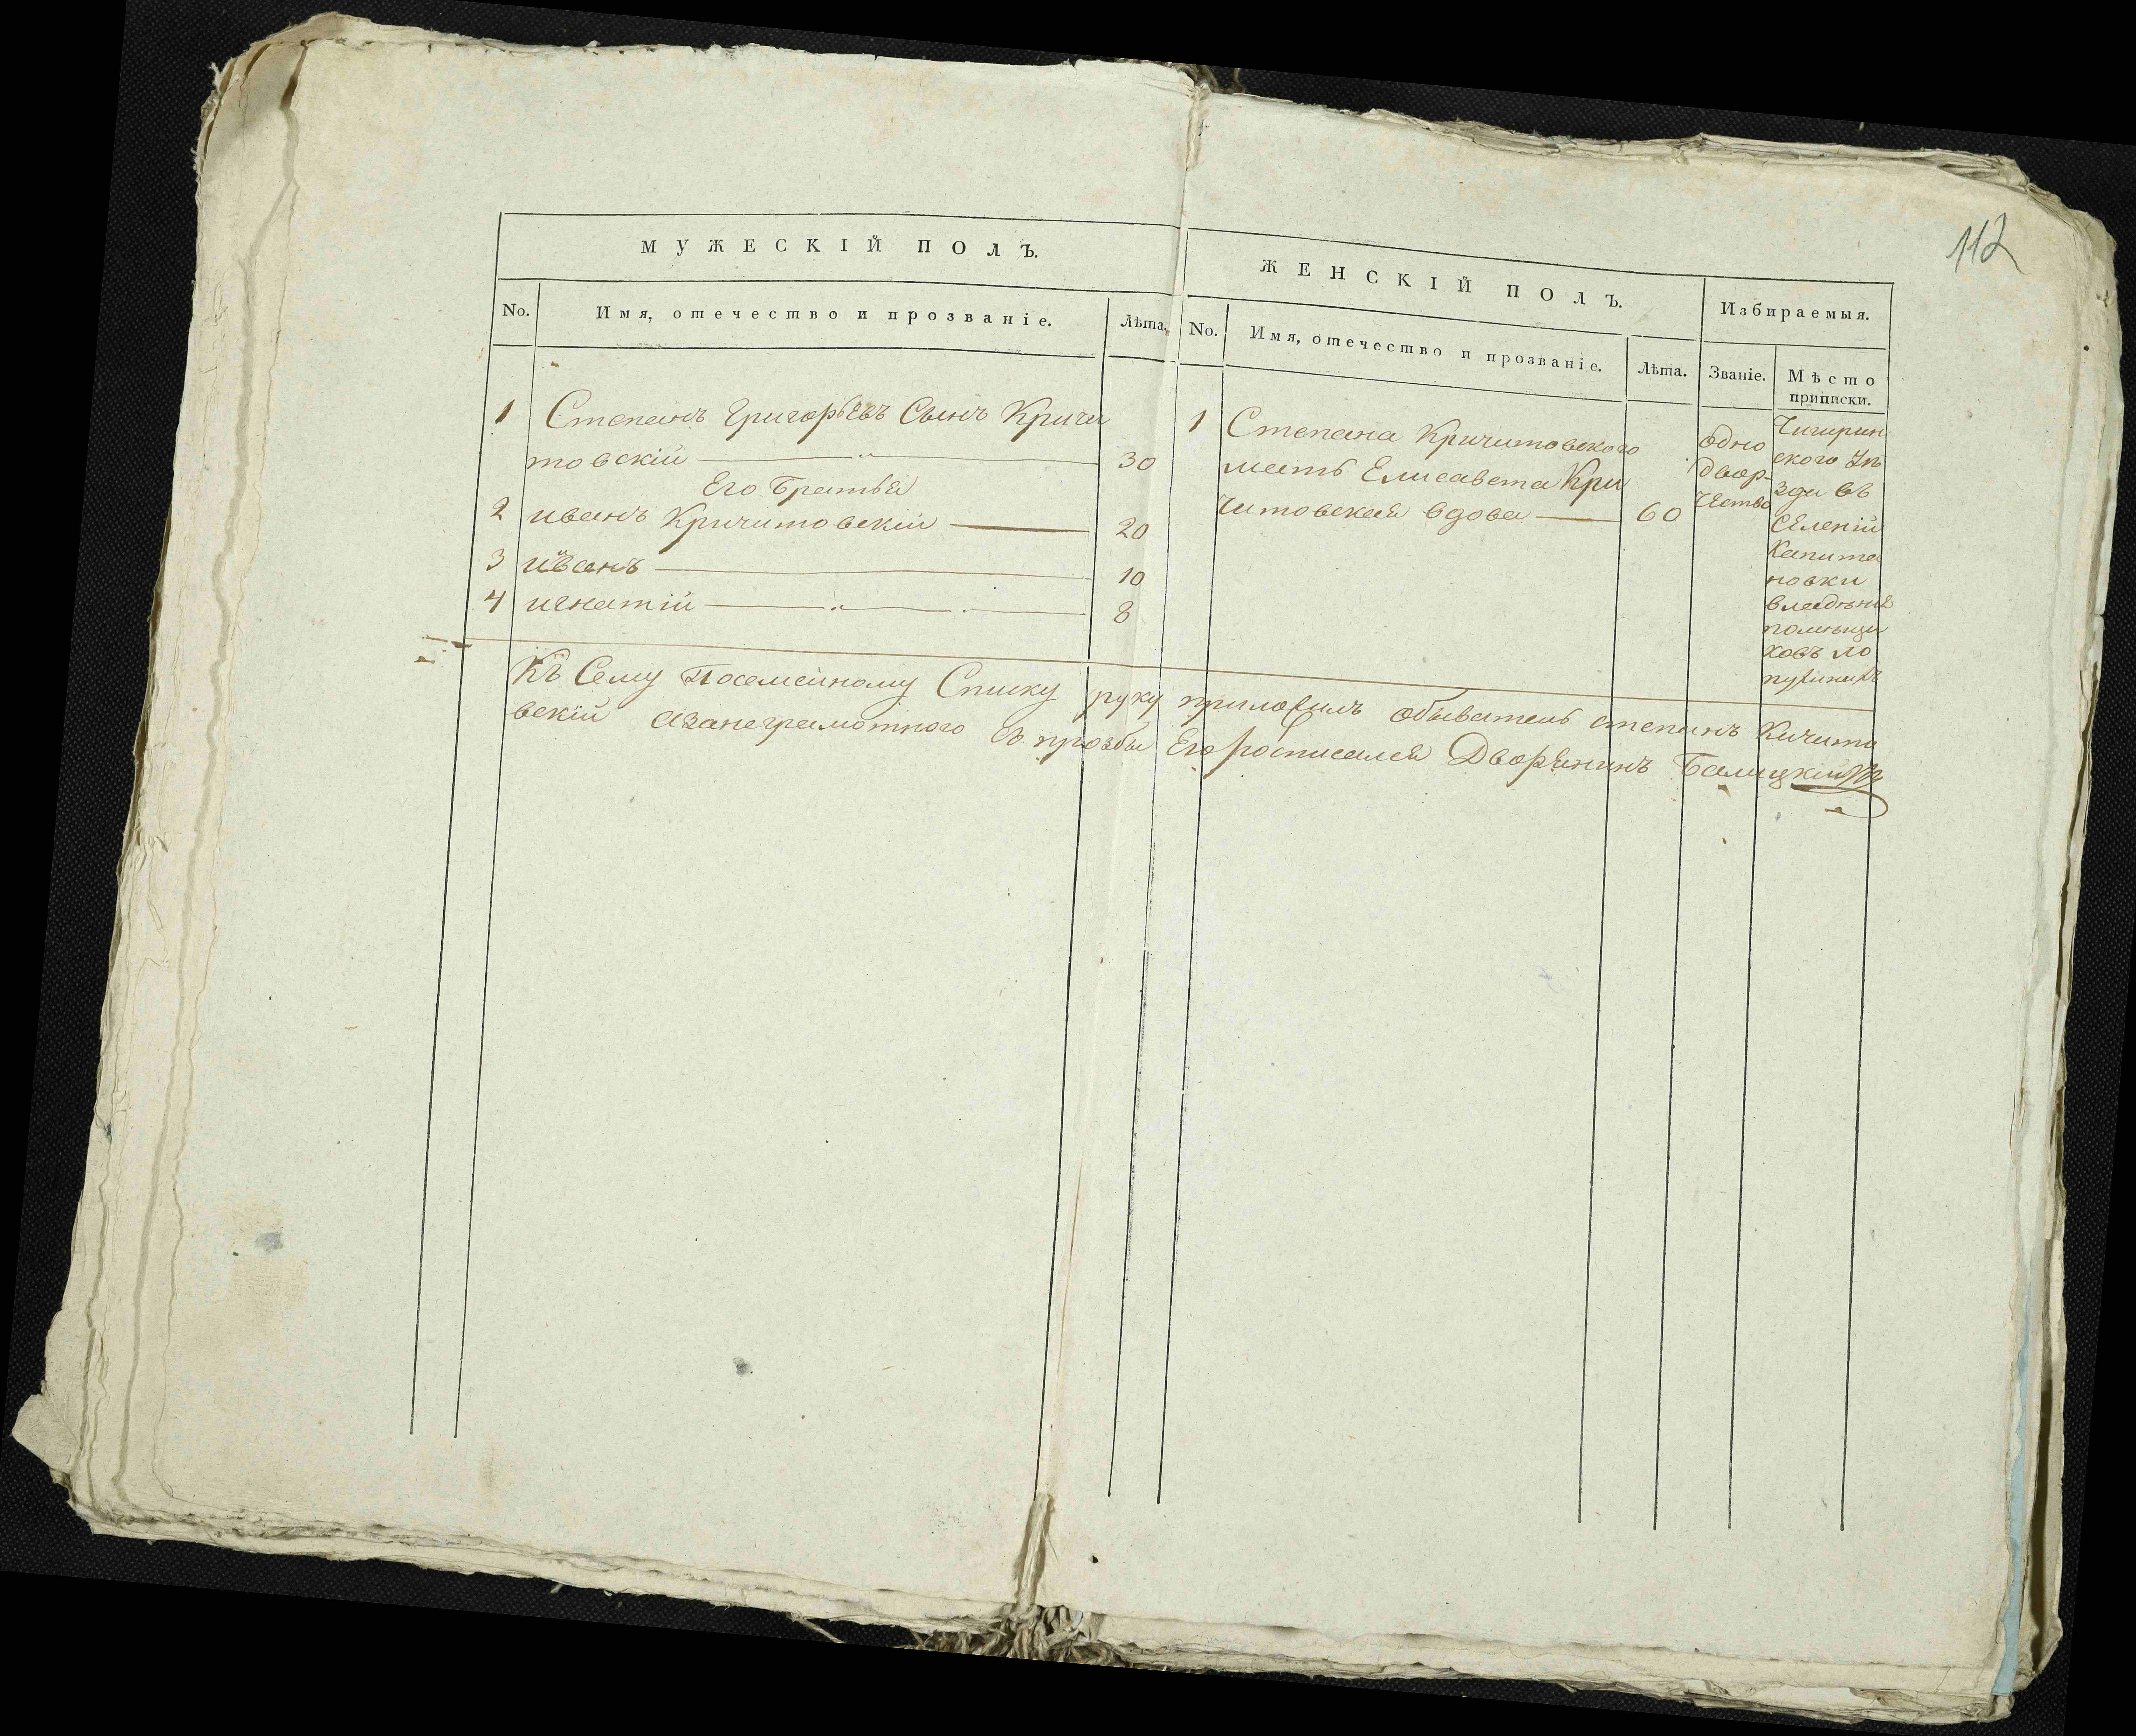 112
МУЖЕСКІЙ ПОЛЪ.
No. Имя, отечество и прозваніе. Лѣта.
1 Степанъ Григорьевъ Сынъ Кричи
товскій 30
Его Братья
2 иванъ Кричитовскій 20
3 иванъ 10
4 игнатій 8
ЖЕНСКІЙ ПОЛЪ.
No. Имя, отечество и прозваніе. Лѣта.
1 Степана Кричитовского
мать Елисавета Кри
читовская вдова 60
Избираемыя.
Званіе.
одно
двор-
чество
Мѣсто
приписки.
Чигирин
ского Уѣ
зда въ
Селеніи
Капита
новки
владѣния
помѣщи
ковъ Ло
пухиных
Къ Сему Посемейному Списку руку приложилъ обыватель степанъ Кичито
вскій азанеграмотного с прозбы Его росписался Дворянинъ Балицкій